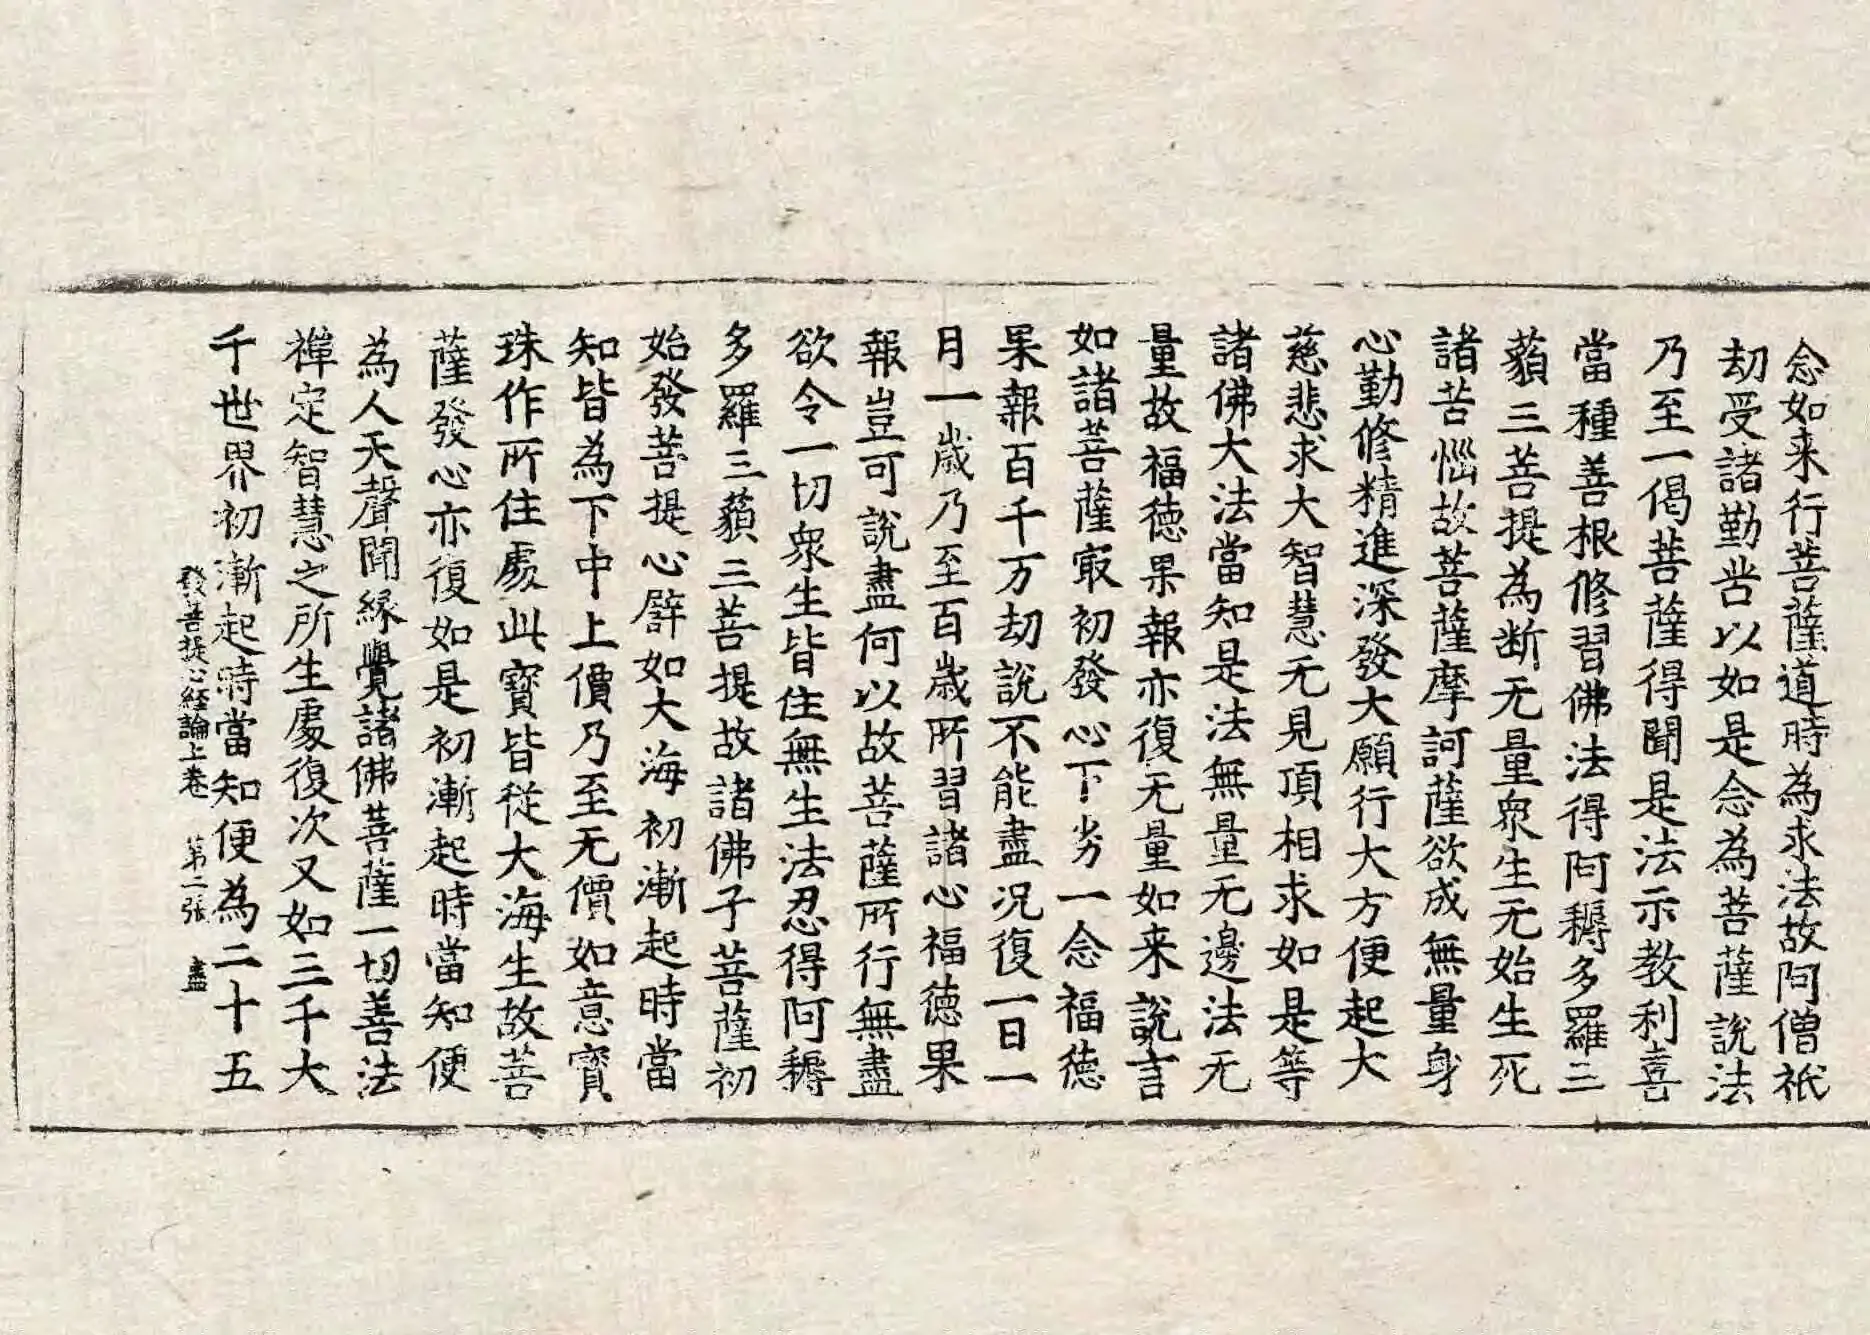 念如来行菩薩道時為求法故阿僧祇
劫受諸勤苦以如是念為菩薩說法
乃至一偈菩薩得聞是法示教利喜
當種善根修習佛法得阿耨多羅三
藐三菩提為断无量眾生无始生死
諸苦惱故菩薩摩訶薩欲成無量身
心勤修精進深發大願行大方便起大
慈悲求大智慧无見頂相求如是等
諸佛大法當知是法無量无邊法无
量故福德果報亦復无量如来說言
如諸菩薩冣初發心下劣一念福德
果報百千万劫說不能盡況復一日一
月一歲乃至百歲所習諸心福德果
報豈可說盡何以故菩薩所行無盡
欲令一切眾生皆住無生法忍得阿耨
多羅三藐三菩提故諸佛子菩薩初
始發菩提心譬如大海初漸起時當
知皆為下中上價乃至无價如意寳
珠作所住處此寳皆従大海生故菩
薩發心亦復如是初漸起時當知便
為人天聲聞緣覺諸佛菩薩一切善法
禪定智慧之所生處復次又如三千大
千世界初漸起時當知便為二十五
發菩提心經論上卷 第二張 盡